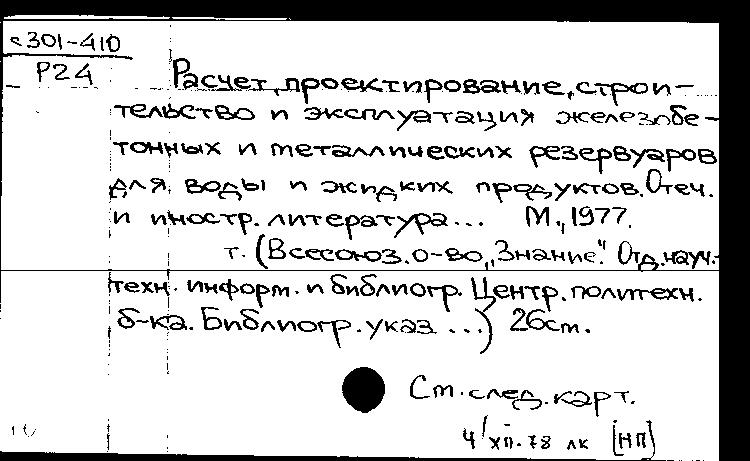 с301-410
Р24
Расчет, проектирование, строи-
тельство и эксплуатация железобе-
тонных и металлических резервуаров
для воды и жидких продуктов. Отеч.
и иностр. литература... М., 1977.
т. (Всесоюз. о-во „Знание". Отд. науч.-
техн. информ. и библиогр. Центр. политехн.
б-ка. Библиогр. указ ...) 26см.
Ст. след. карт.
4/XII-78 лк [НП]